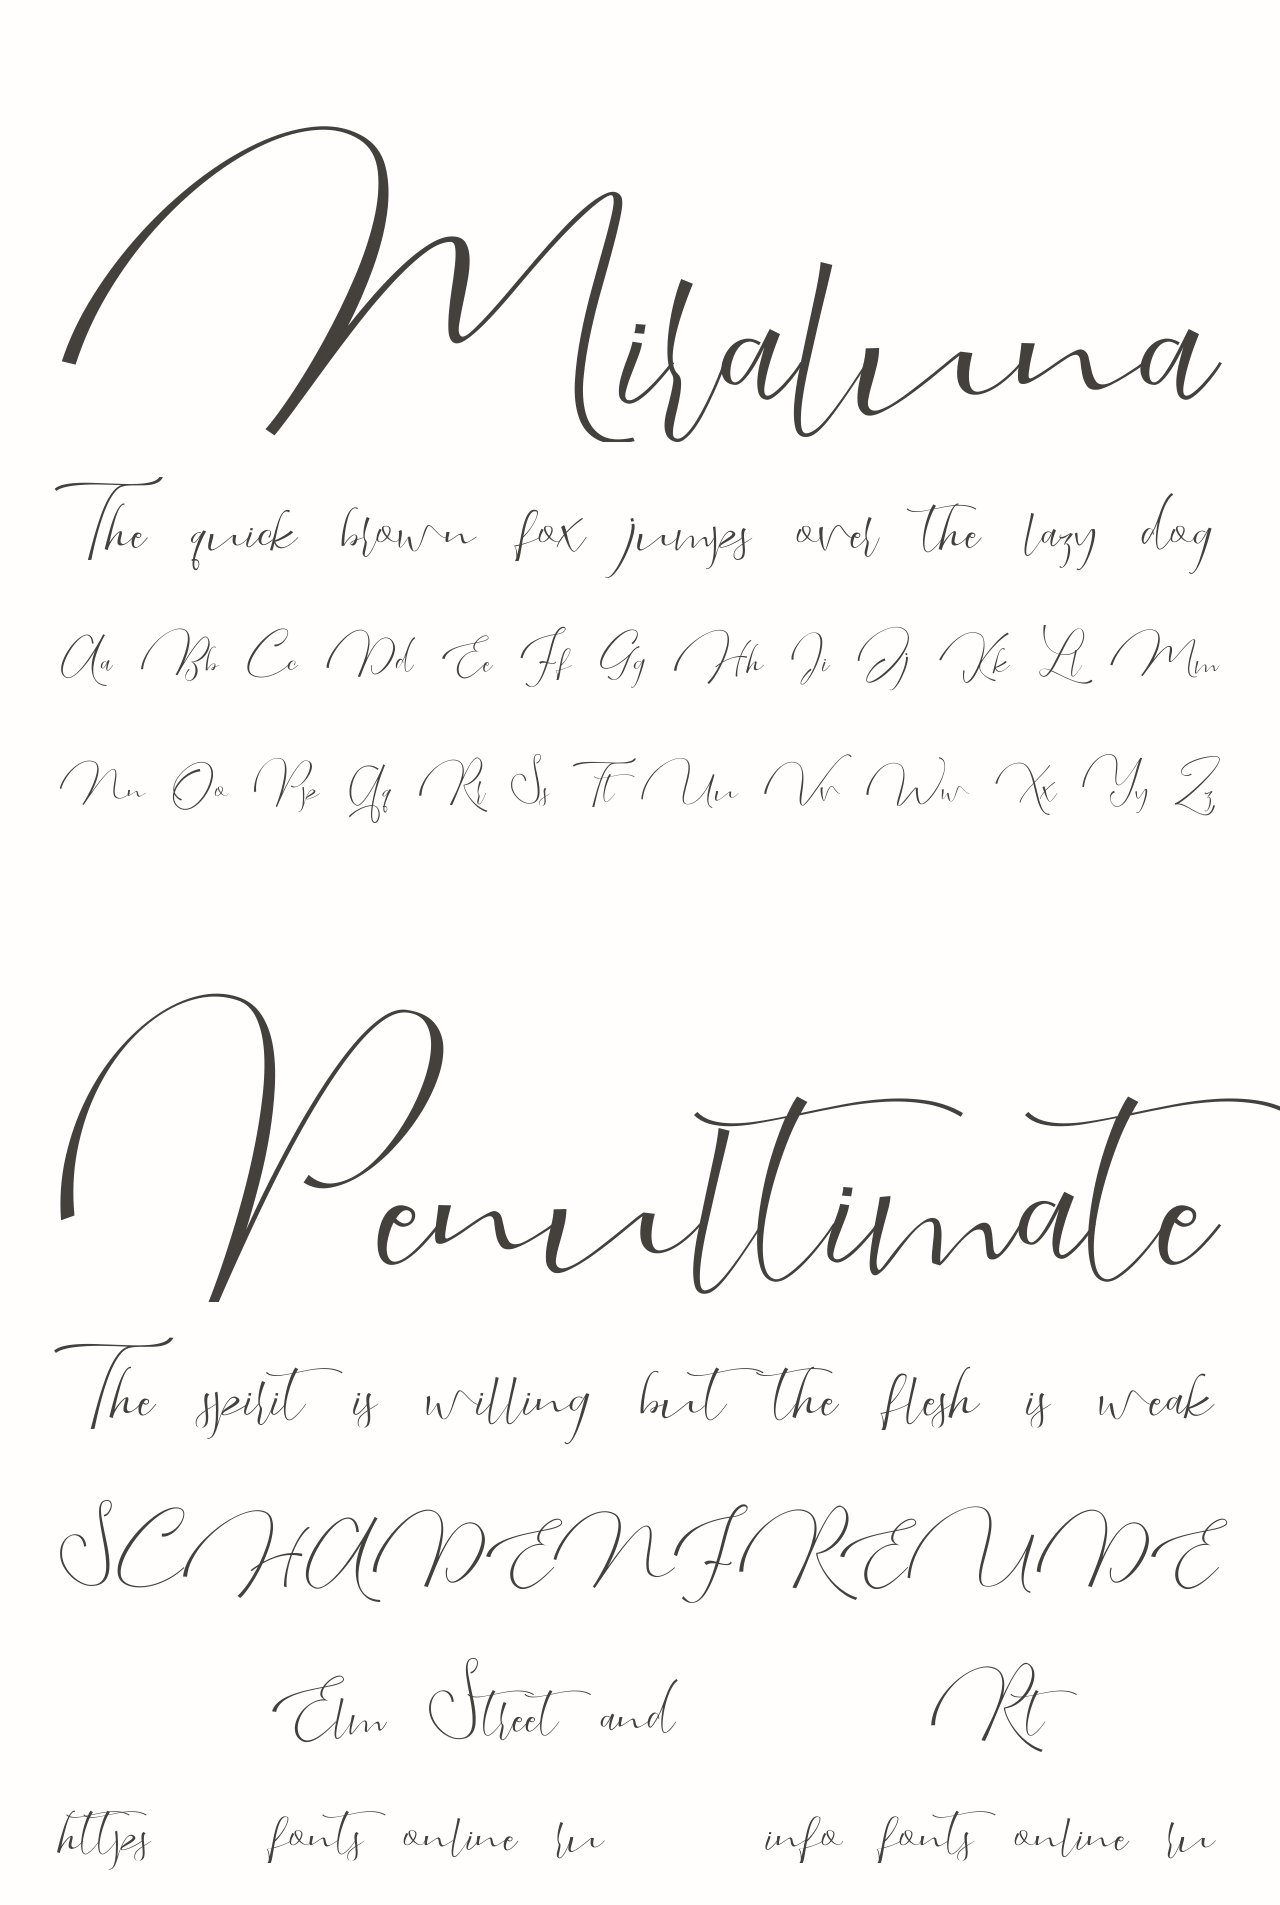 Miraluna
The quick brown fox jumps over the lazy dog
Aa Bb Cc Dd Ee Ff Gg Hh Ii Jj Kk Ll Mm
Nn Oo Pp Qq Rr Ss Tt Uu Vv Ww Xx Yy Zz
Penultimate
The spirit is willing but the flesh is weak
SCHADENFREUDE
Elm Street and Rt
https fonts online ru info fonts online ru